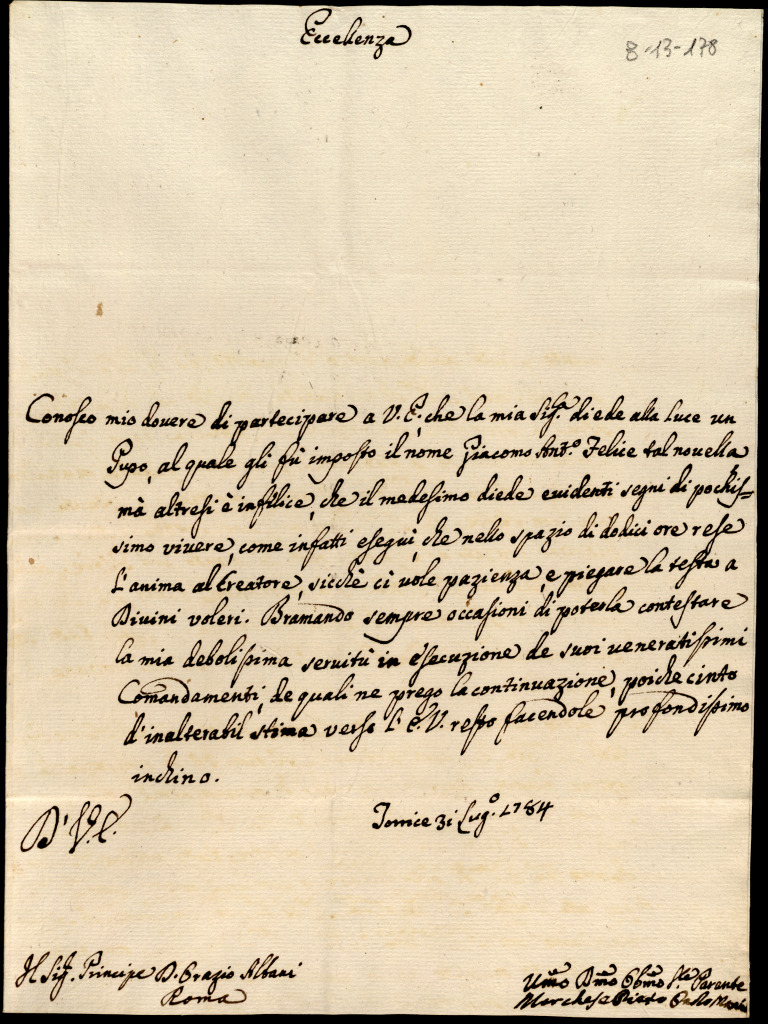 Eccellenza
8-13-178
Conosco mio dovere di partecipare a V. E. che la mia Sig.ra diede alla luce un
Pupo, al quale gli fù imposto il nome Giacomo Ant.o Felice tal novella
mà altresi è infilice, che il medesimo diede evidenti segni di pochis=
simo vivere, come infatti eseguì, che nello spazio di dodici ore rese
l'anima al Creatore, sicchè ci vole pazienza, e piegare la testa a
Divini voleri. Bramando sempre occasioni di poterla contestare
la mia debolissima servitù in esecuzione de suoi veneratissimi
Comandamenti, de quali ne prego la continuazione, poiche cinto
d'inalterabil stima verso l'E. V. resto facendole profondissimo
inchino.
D' V. E.
Torrice 31 Lug.o 1784
Il Sig.r Principe D. Orazio Albani
Roma
Umo Dmo Obmo Parente
Marchese